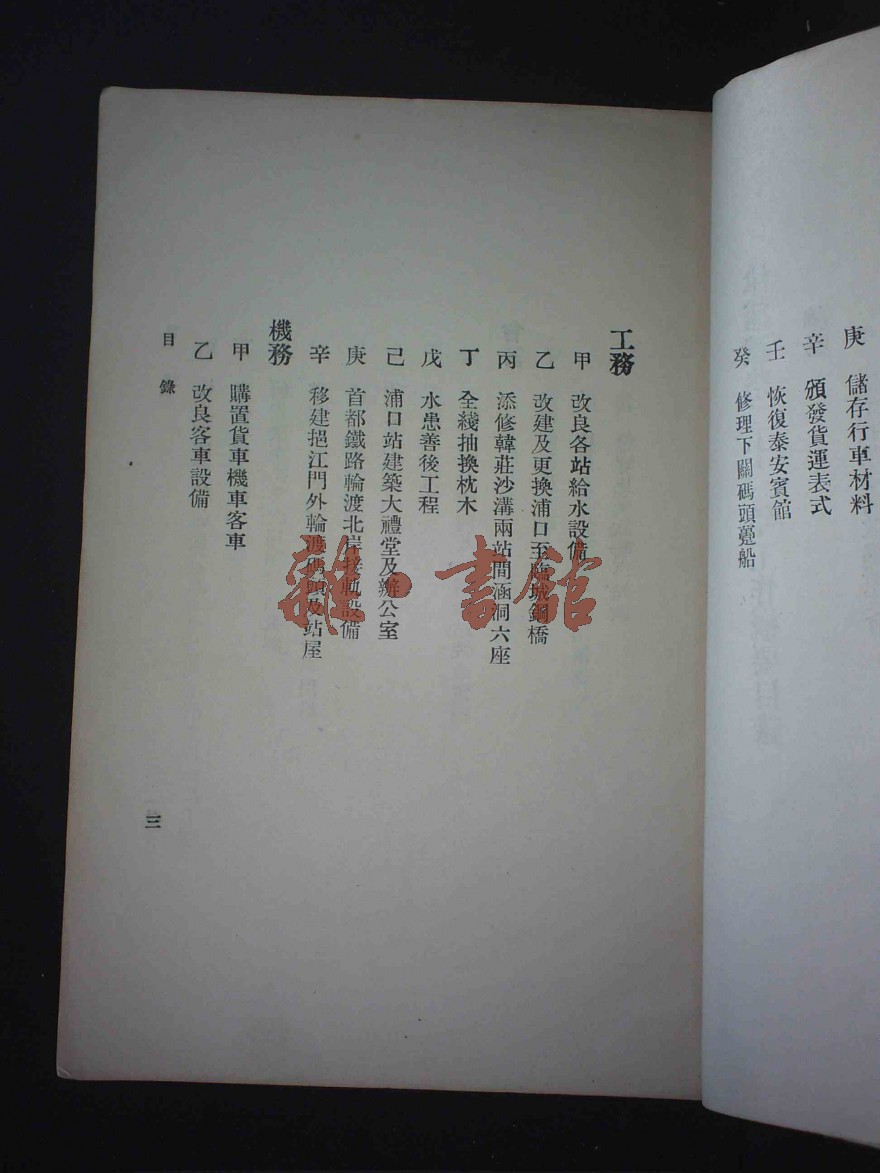 庚 儲存行車材料
辛 頒發貨運表式
壬 恢復泰安賓館
癸 修理下關碼頭躉船
工務
甲 改良各站給水設備
乙 改建及更換浦口至臨城鋼橋
丙 添修韓莊沙溝兩站間涵洞六座
丁 全綫抽換枕木
戊 水患善後工程
己 浦口站建築大禮堂及辦公室
庚 首都鐵路輪渡北岸接軌設備
辛 移建挹江門外輪渡碼頭及站屋
機務
甲 購置貨車機車客車
乙 改良客車設備
目錄
三
雜·書館